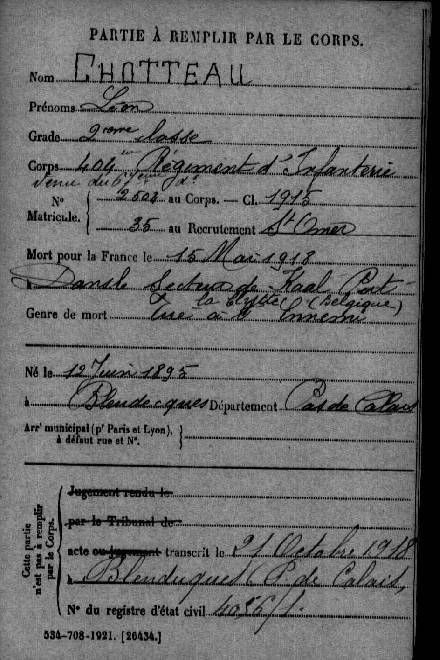 PARTIE À REMPLIR PAR LE CORPS.
Nom CHOTTEAU
Prénoms Léon
Grade 2ième classe
Corps 404e Régiment d'Infanterie
Venu du
N° 2503 au Corps. — Cl. 1915
Matricule. 35 au Recrutement St Omer
Mort pour la France le 15 Mai 1918
Dans le Secteur de Kaal Port
la Clytte (Belgique)
Genre de mort Tué à l'Ennemi
Né le 12 Juin 1895
à Blendecques Département Pas de Calais
Arrt municipal (pr Paris et Lyon),
à défaut rue et N°.
Cette partie
n'est pas à remplir
par le Corps.
Jugement rendu le
par le Tribunal de
acte ou jugement transcrit le 21 Octobre 1918
à Blendecques P. de Calais
N° du registre d'état civil
534-708-1921. [26434.]